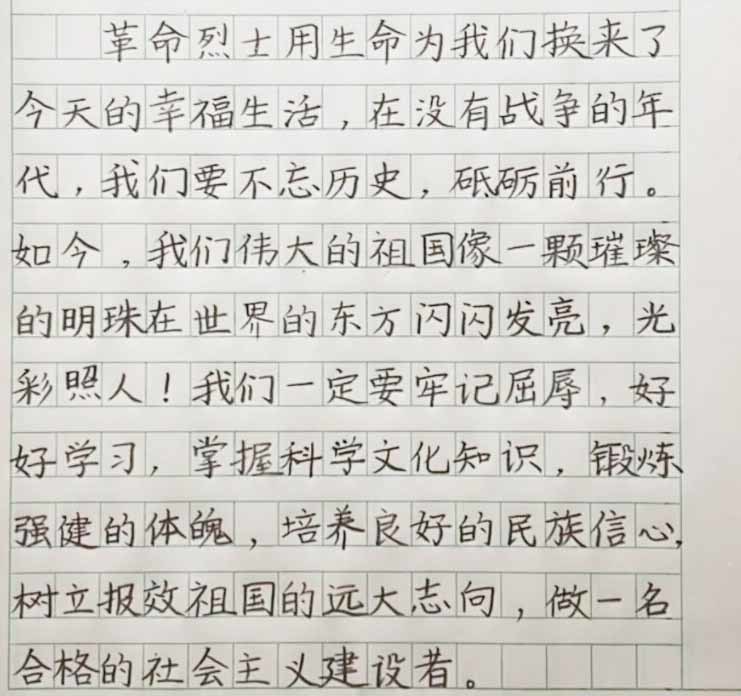 革命烈士用生命为我们换来了
今天的幸福生活，在没有战争的年
代，我们要不忘历史，砥砺前行。
如今，我们伟大的祖国像一颗璀璨
的明珠在世界的东方闪闪发亮，光
彩照人！我们一定要牢记屈辱，好
好学习，掌握科学文化知识，锻炼
强健的体魄，培养良好的民族信心，
树立报效祖国的远大志向，做一名
合格的社会主义建设者。